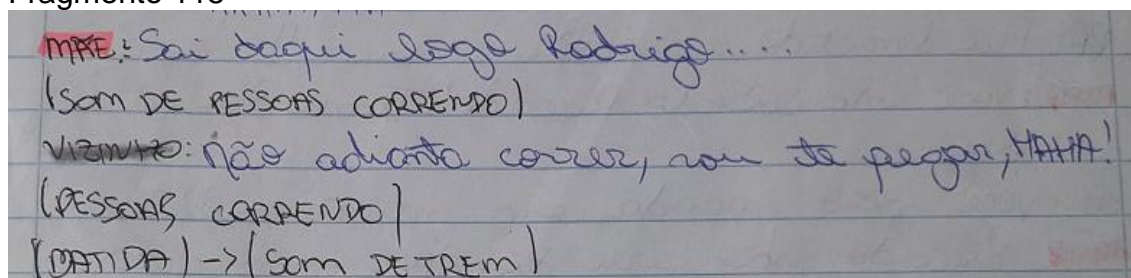 MÃE: Sai daqui logo Rodrigo....
(SOM DE PESSOAS CORRENDO)
VIZINHO: Não adianta correr, vou te pegar, HAHA!
(PESSOAS CORRENDO)
(BATIDA) -> (SOM DE TREM)